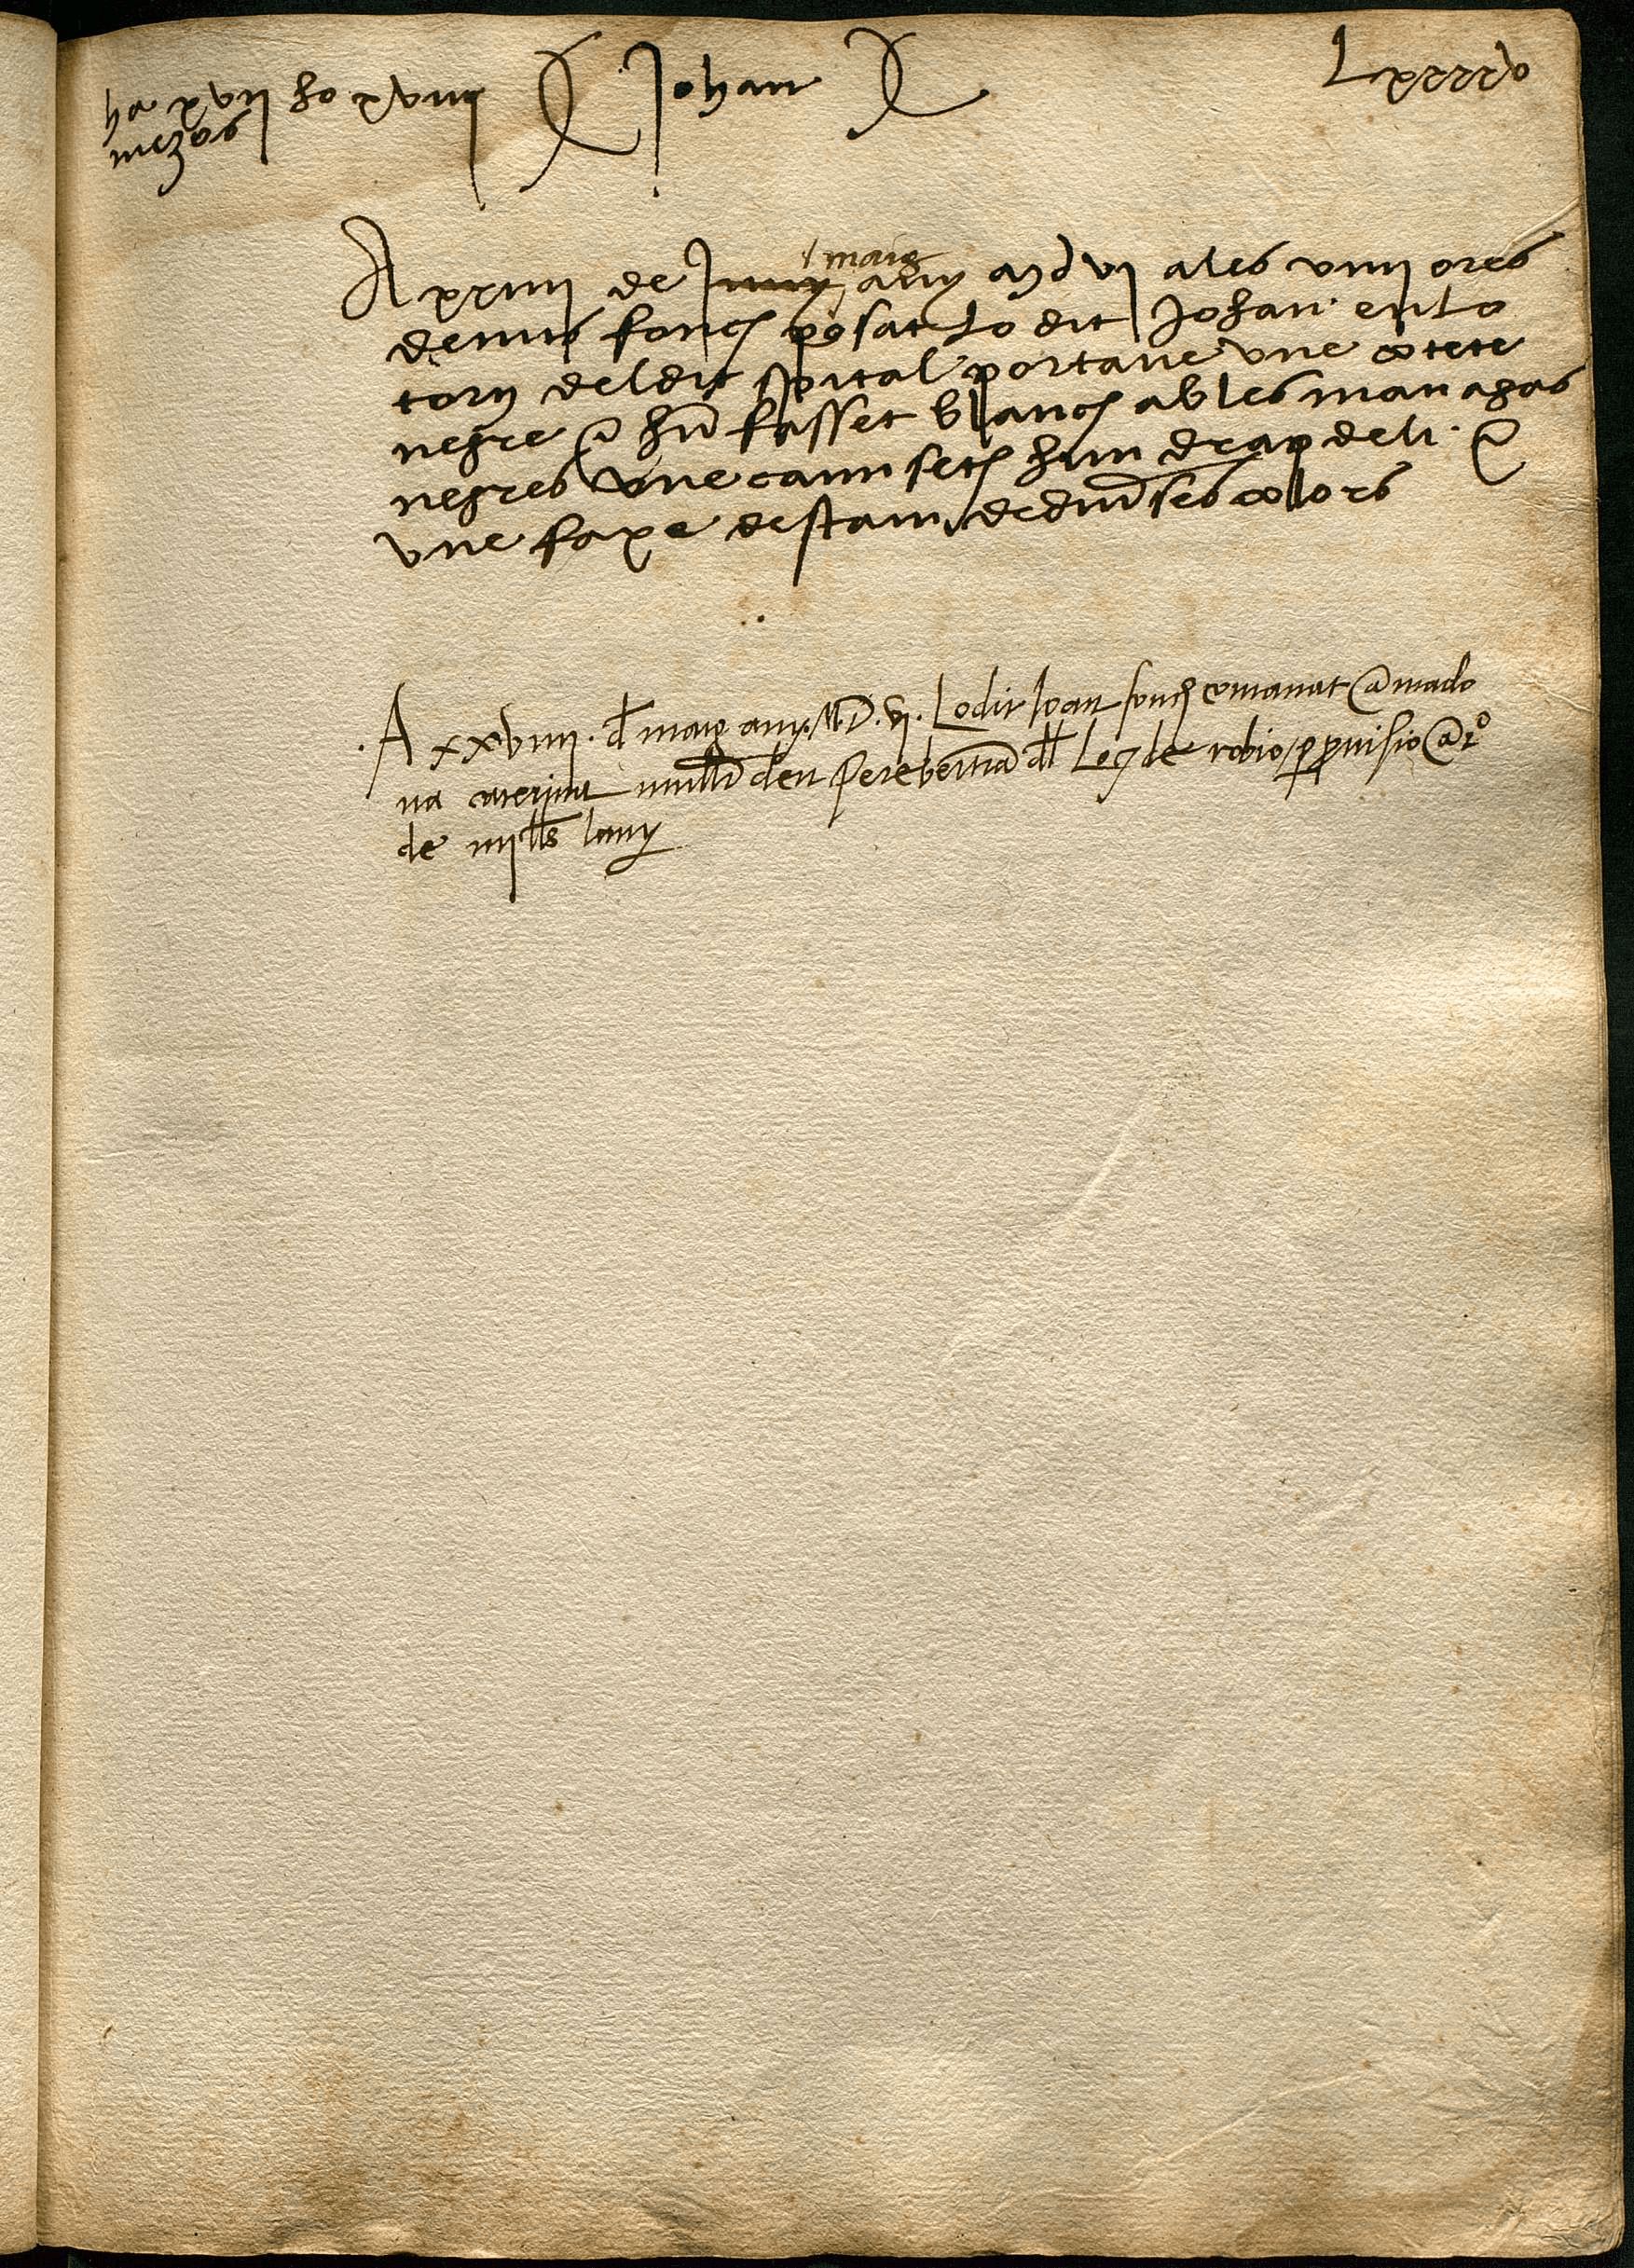 ha xvii ho xviii Johan Lxxxxv
mezos
A xxiiii de juny maig any mdvi a les viiii ores
de nit fonch posat lo dit Johan en lo
torn del dit spital portave vne cotete
negre e hun fasset blanch ab les manages
negres vne camisete hun drap de li e
vne faxe destam de diverses colors
A xxviiii. d maig any. MD.vi. Lo dit Joan fonch comanat a mado
na caterina mullr den Pere bertra dl loch de robio, p provisio a ro
de iiij lls lany